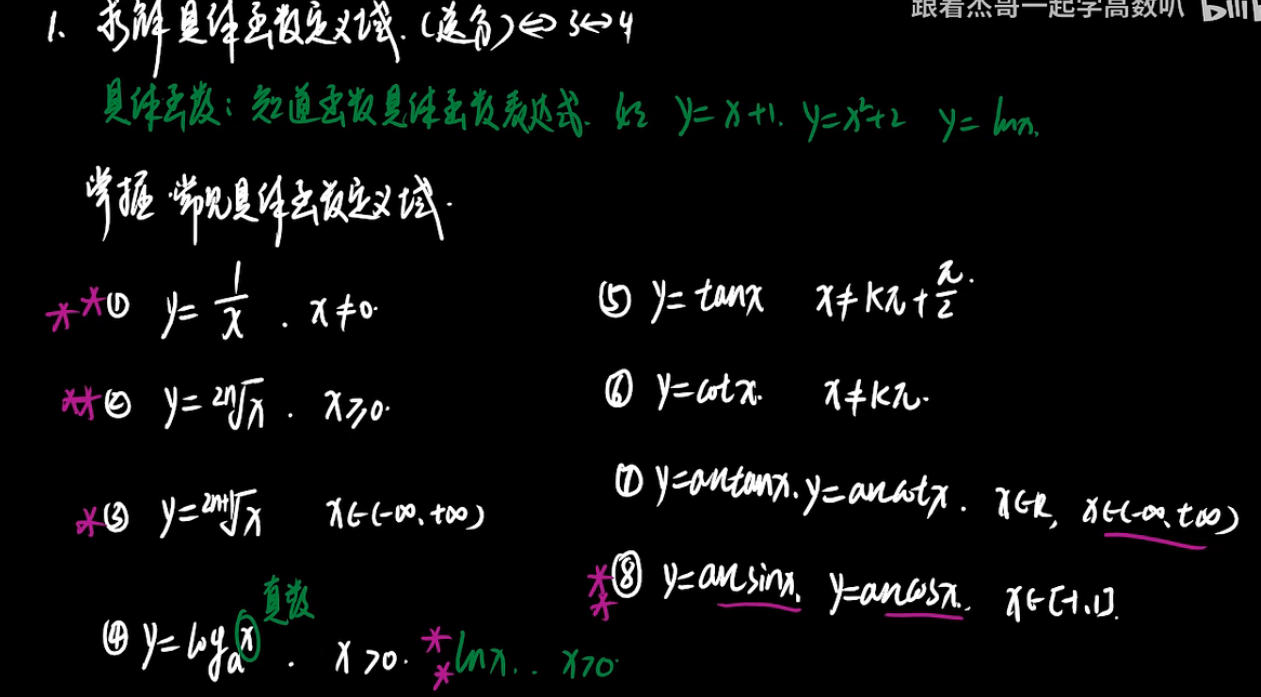 跟着杰哥一起学高数叭 bili
1、求解具体函数定义域.(送分)⇔3⇔4
具体函数:知道函数具体函数表达式. 如 y=x+1. y=x²+2 y=lnx.
掌握 常见具体函数定义域.
**① y=1/x . x≠0.
**② y=²ⁿ√x . x≥0.
*③ y=²ⁿ⁺¹√x x∈(-∞,+∞)
真数
④ y=logₐx . x>0. ** lnx.. x>0.
⑤ y=tanx x≠kπ+π/2.
⑥ y=cotx. x≠kπ.
⑦ y=arctanx. y=arccotx. x∈R, x∈(-∞,+∞)
**⑧ y=arcsinx, y=arccosx. x∈[-1,1].